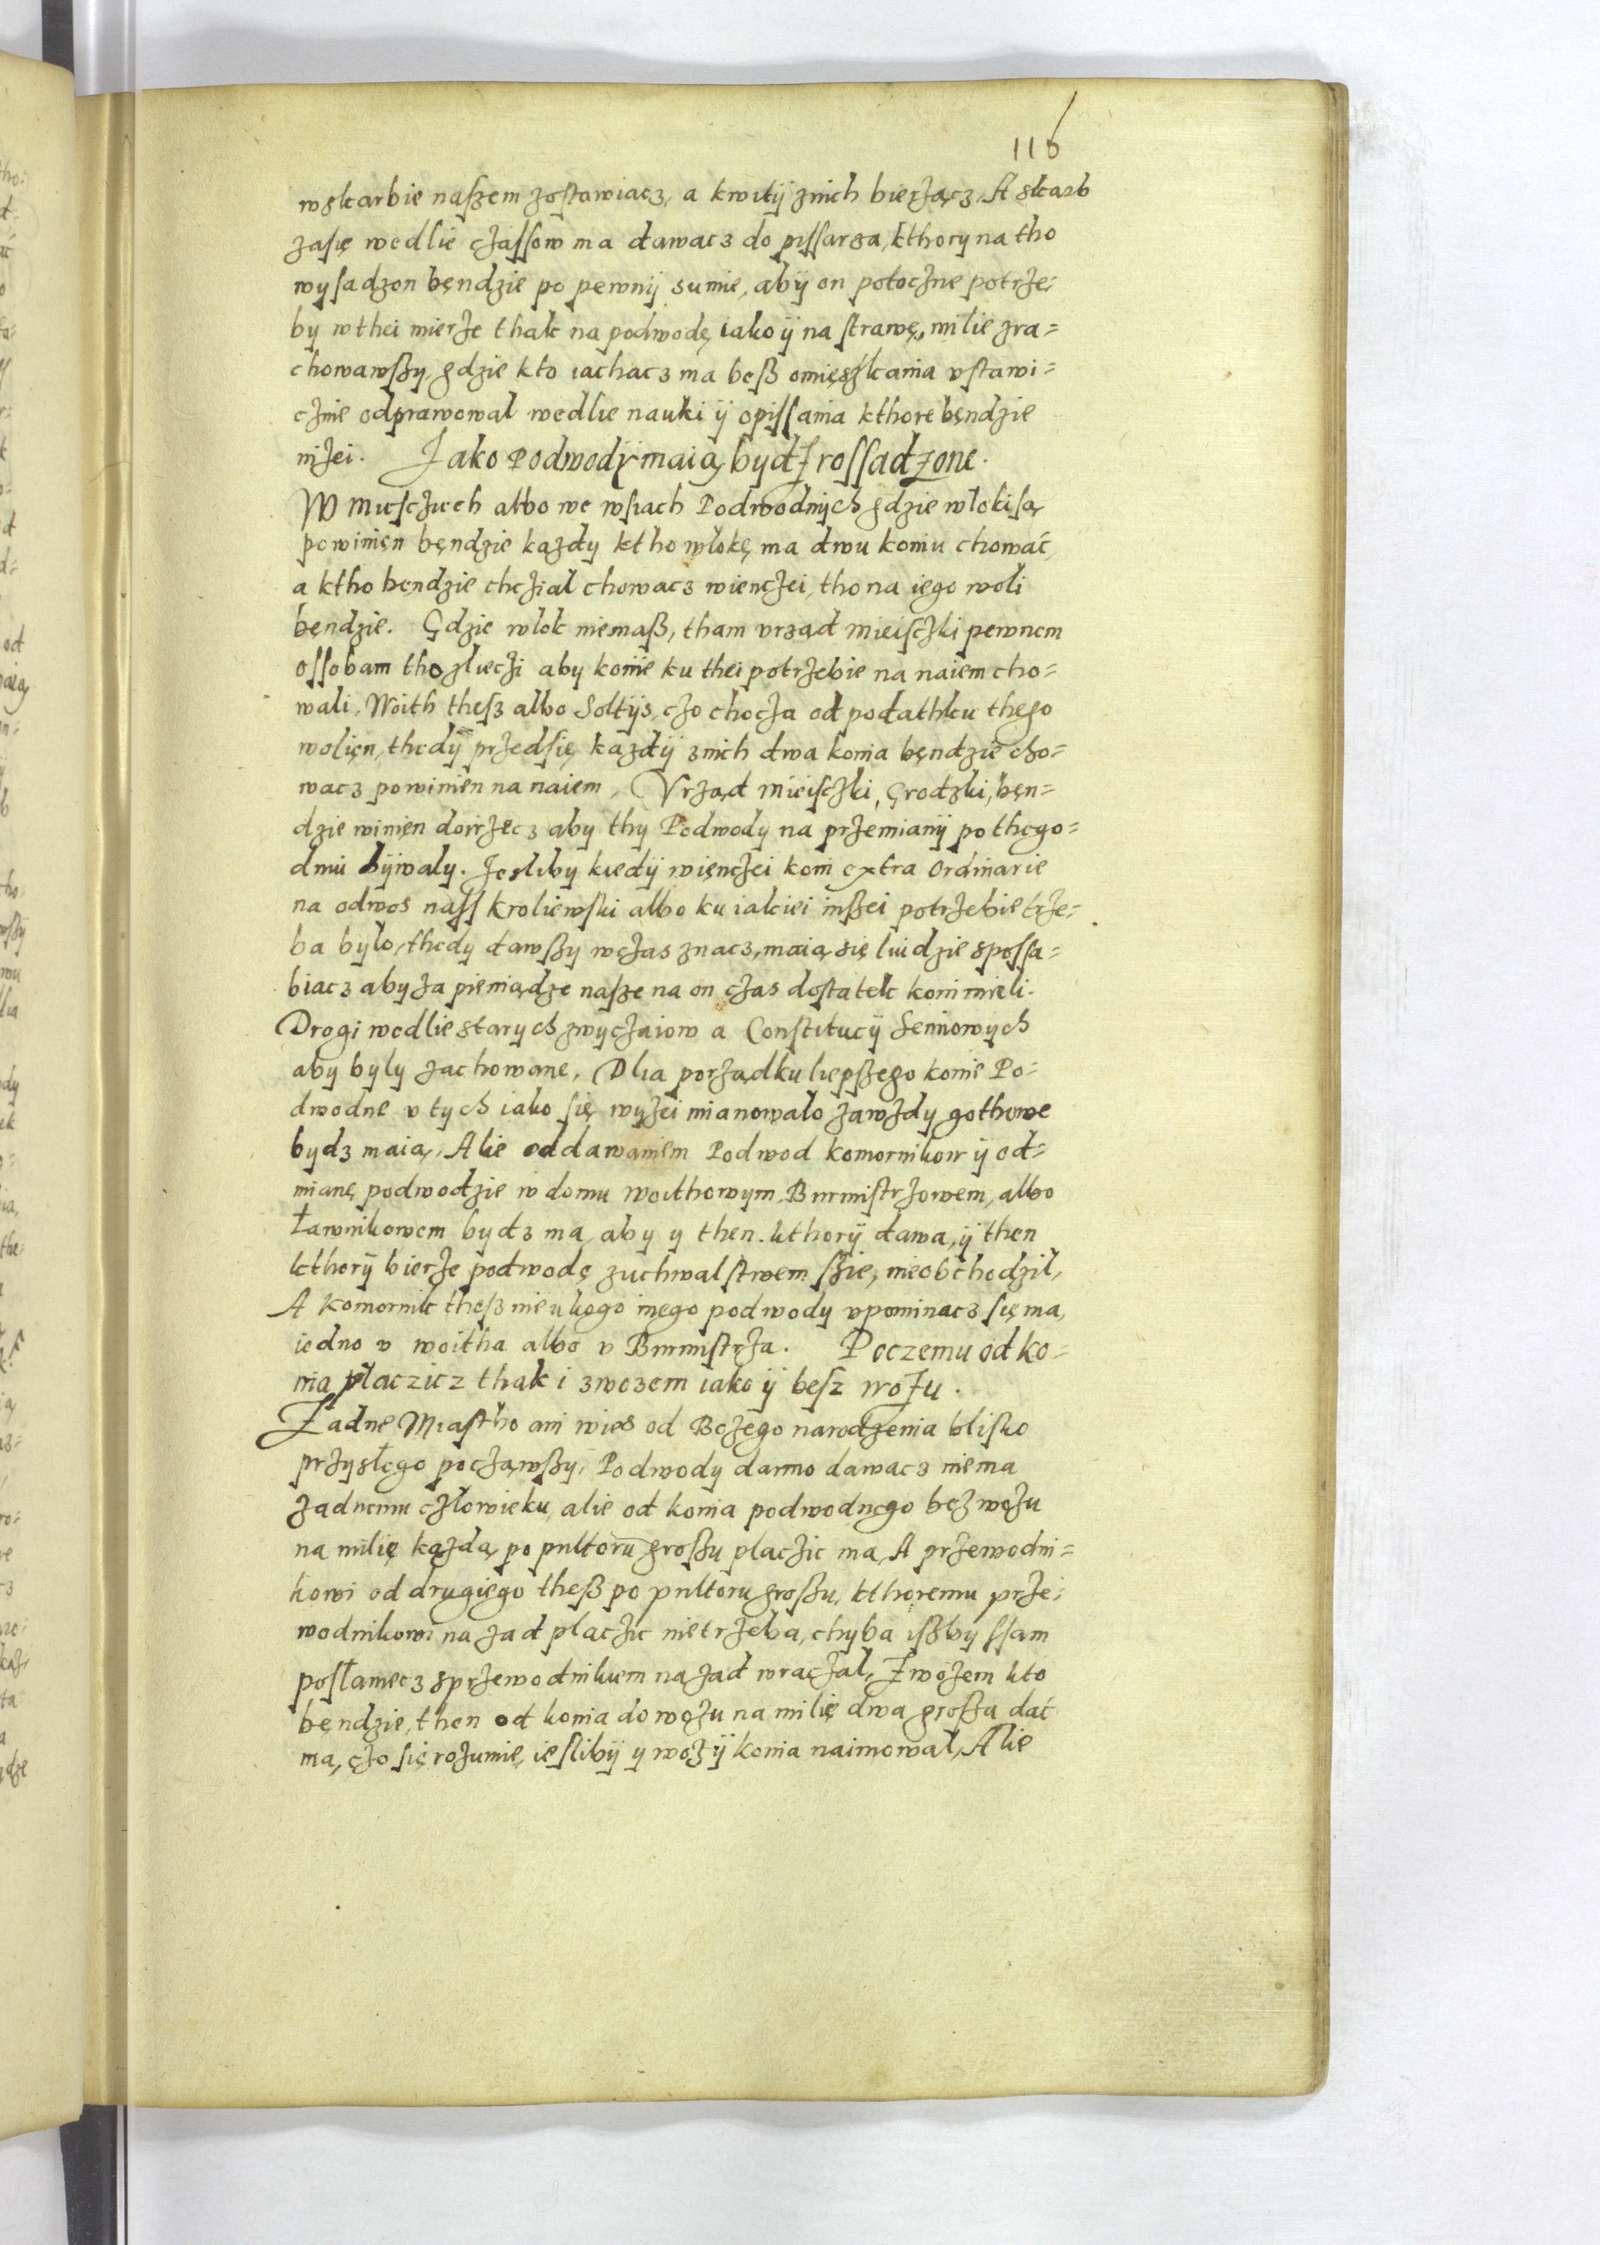 116
wskarbie naszem zostawiacz, a kwitÿ znich bierżącz, A skarb
zasię wedlie cżassow ma dawacz do pissarza, kthory na tho
wysadzon bęndzie po pewnÿ sumie, abÿ on potocżne potrże=
by wthei mierże thak na podwodę iako ÿ na strawę, milie zra=
chowawszy gdzie kto iachacz ma besz omięszkania vstawi=
cżnie odprawowal wedlie nauki ÿ opissania kthore bęndzie
niżei. Jako Podwody maią bydź rossadzone.
W Miescziech albo we wsiach Podwodnych gdzie wloki są
powinięn bęndzie każdy ktho wlokę ma dwu koniu chować,
a ktho bęndzie chcżial chowacz wiencżei, tho na iego woli
bęndzie. Gdzie wlok niemasz, tham vrząd Mieisczki pewnem
ossobam tho zlieczi aby konie ku thei potrżebie na naiem cho=
wali, Woith thesz albo Soltÿs, czo chocża od podathku thego
wolięn, thedÿ przedsię każdÿ znich dwa konia bęndzie cho=
wacz powinien na naiem, Vrżąd Mieisczki, Grodzki, bęn=
dzie winięn doirżecz aby thy Podwody na przemianÿ po thego=
dniu bÿwaly. Jesliby kiedÿ więnczei koni extra Ordinarie
na odwos nass kroliewski albo ku iakiei inszei potrżebie trże=
ba bylo, thedy dawszy wczas znacz, maią się liudzie sposa=
biacz aby za pieniądze nasze na on czas dostatek koni mieli.
Drogi wedlie starych zwyczaiow a Constitucÿ Seimowych
aby byly zachowane, Dlia porządku liepszego konie Po=
dwodne v tych iako się wyżei mianowalo zawżdy gothowe
bydz maią, Alie oddawaniem Podwod komornikow ÿ od=
mianę podwodzie w domu woithowym, Burmistrzowem, albo
ławnikowem bydz ma, aby y then kthorÿ dawa, ÿ then
kthorÿ bierże podwodę zuchwalstwem szie, nieobchodzil,
A Komornik thesz nie u kogo inego podwody vpominacz się ma,
iedno v woitha albo v Burmistrża. Poczemu od ko=
nia placzicz thak i zwozem iako ÿ besz wozu.
Zadne Miastho ani wies od Bożego narodzenia blisko
przysłego począwszy, Podwody darmo dawacz niema
żadnemu człowieku, alie od konia podwodnego bez wozu
na milię każdą po pultoru groszu placzic ma, A przewodni=
kowi od drugiego thesz po pultoru groszu, kthoremu prze=
wodnikowi nazad placzic nietrzeba, chyba iszby ssam
posłaniecz sprzewodnikiem nazad wraczal, Zwozem kto
bęndzie, then od konia do wozu na milię dwa grosza dać
ma, czo się rozumie, ieslibÿ y wozÿ konia naimowal, Alie